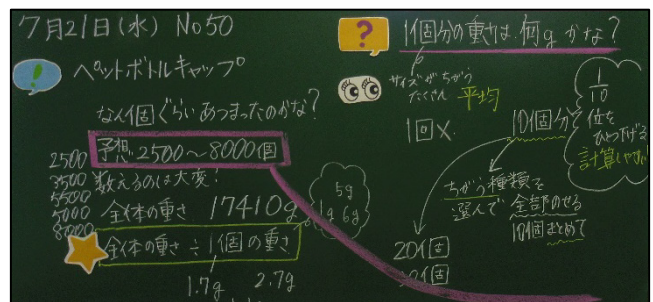 7月21日(水) No50
!
ペットボトルキャップ
なん個ぐらいあつまったのかな?
予想 2500〜8000個
2500
3500
5500
5000
8000
数えるのは大変!
全体の重さ 17410g
5g
1g 6g
全体の重さ÷1個の重さ
1.7g 2.7g
?
1個分の重さは、何gかな?
サイズがちがう
たくさん 平均
1回×
10個分
1/10
位を
ひとつさげる
計算しやすい
ちがう種類を
選んで 全部のせる
10個まとめて
20個